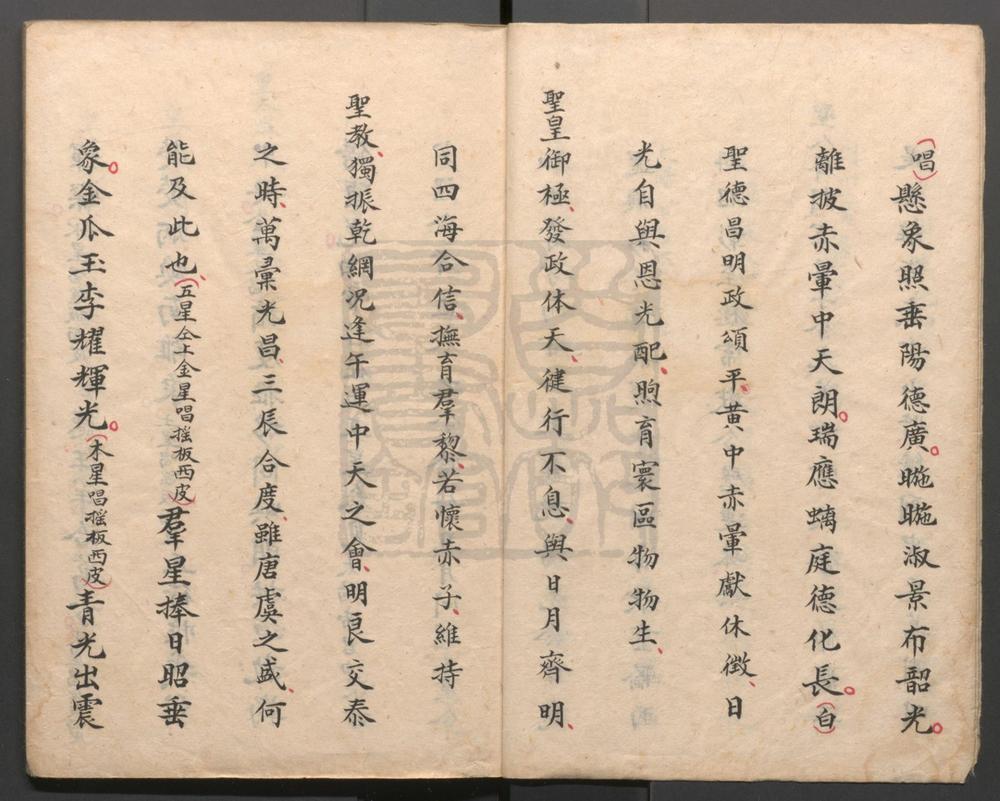 （唱）懸象照垂陽德廣。暆暆淑景布韶光。
離披赤暈中天朗。瑞應螭庭德化長。（白）
聖德昌明政頌平、黃中赤暈獻休徵、日
光自與恩光配、煦育寰區物物生、
聖皇御極、發政体天、健行不息、與日月齊明、
同四海合信、撫育羣黎、若懷赤子、維持
聖教、獨振乾網况逢午運中天之會、明良交泰
之時、萬彙光昌、三辰合度、雖唐虞之盛、何
能及此也、（五星仝上金星唱搖板西皮）羣星捧日昭垂
象。金瓜玉李耀輝光。（木星唱搖板西皮）青光出震